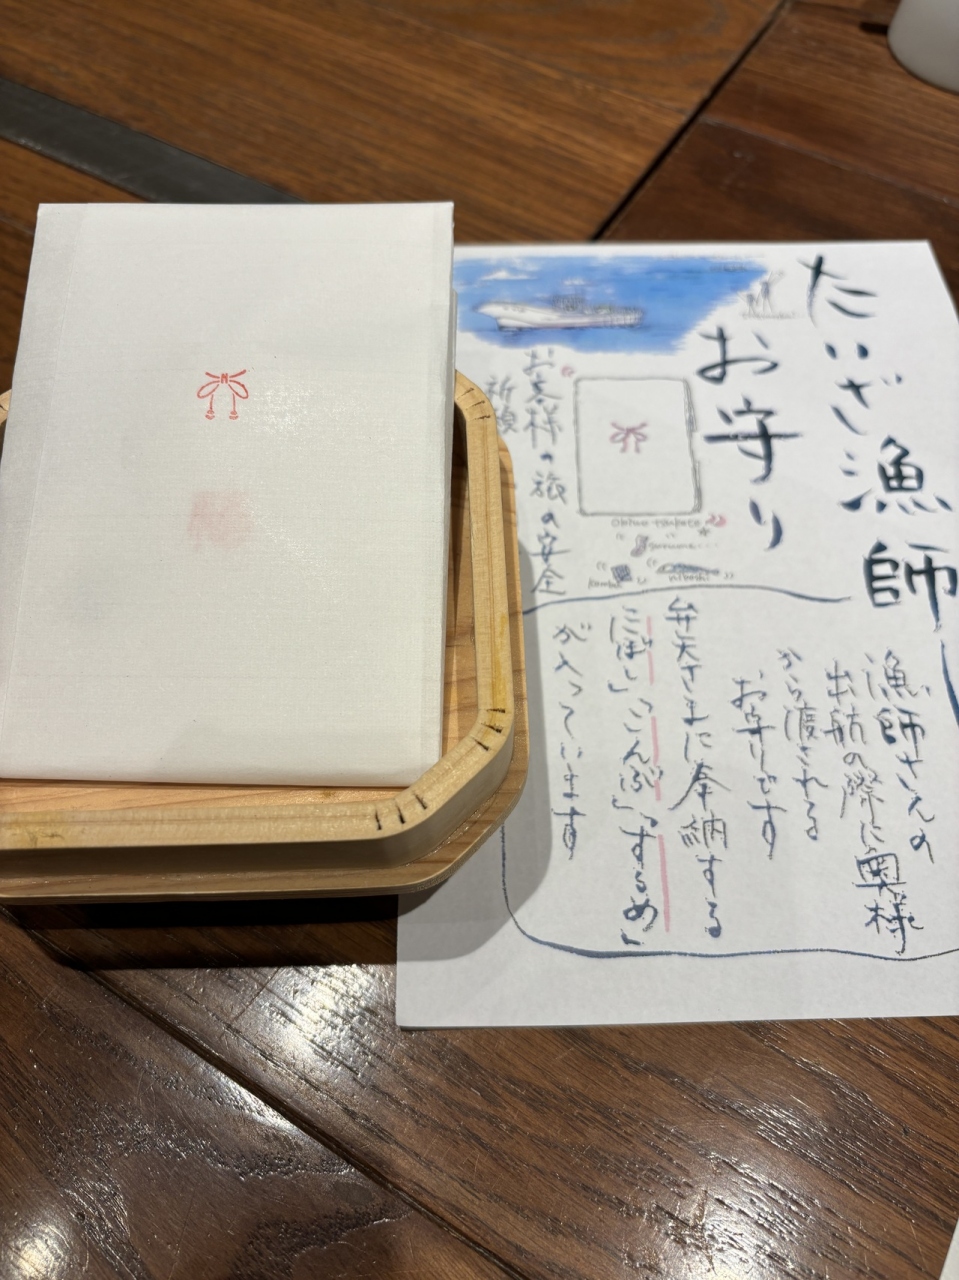 たいざ漁師
お守り
お客様の旅の安全
祈願
漁師さんの
出航の際に奥様
から渡される
お守りです
弁天さまに奉納する
「にぼし」「こんぶ」「するめ」
が入っています